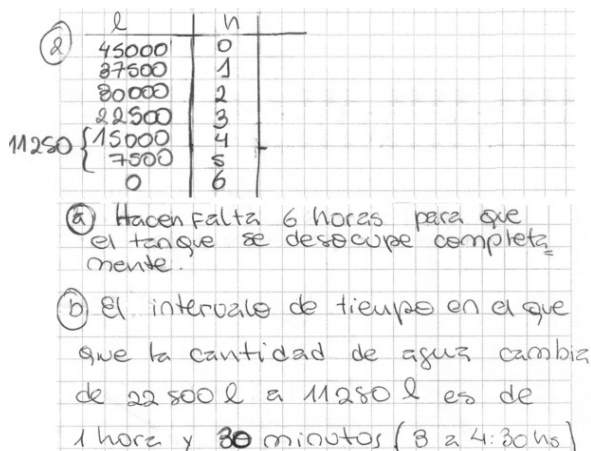 ② l h
45000 0
37500 1
30000 2
22500 3
11250 { 15000 4
7500 5
0 6
ⓐ Hacen falta 6 horas para que
el tanque se desocupe completa
mente.
ⓑ El intervalo de tiempo en el que
que la cantidad de agua cambia
de 22500 l a 11250 l es de
1 hora y 30 minutos (3 a 4:30 hs)